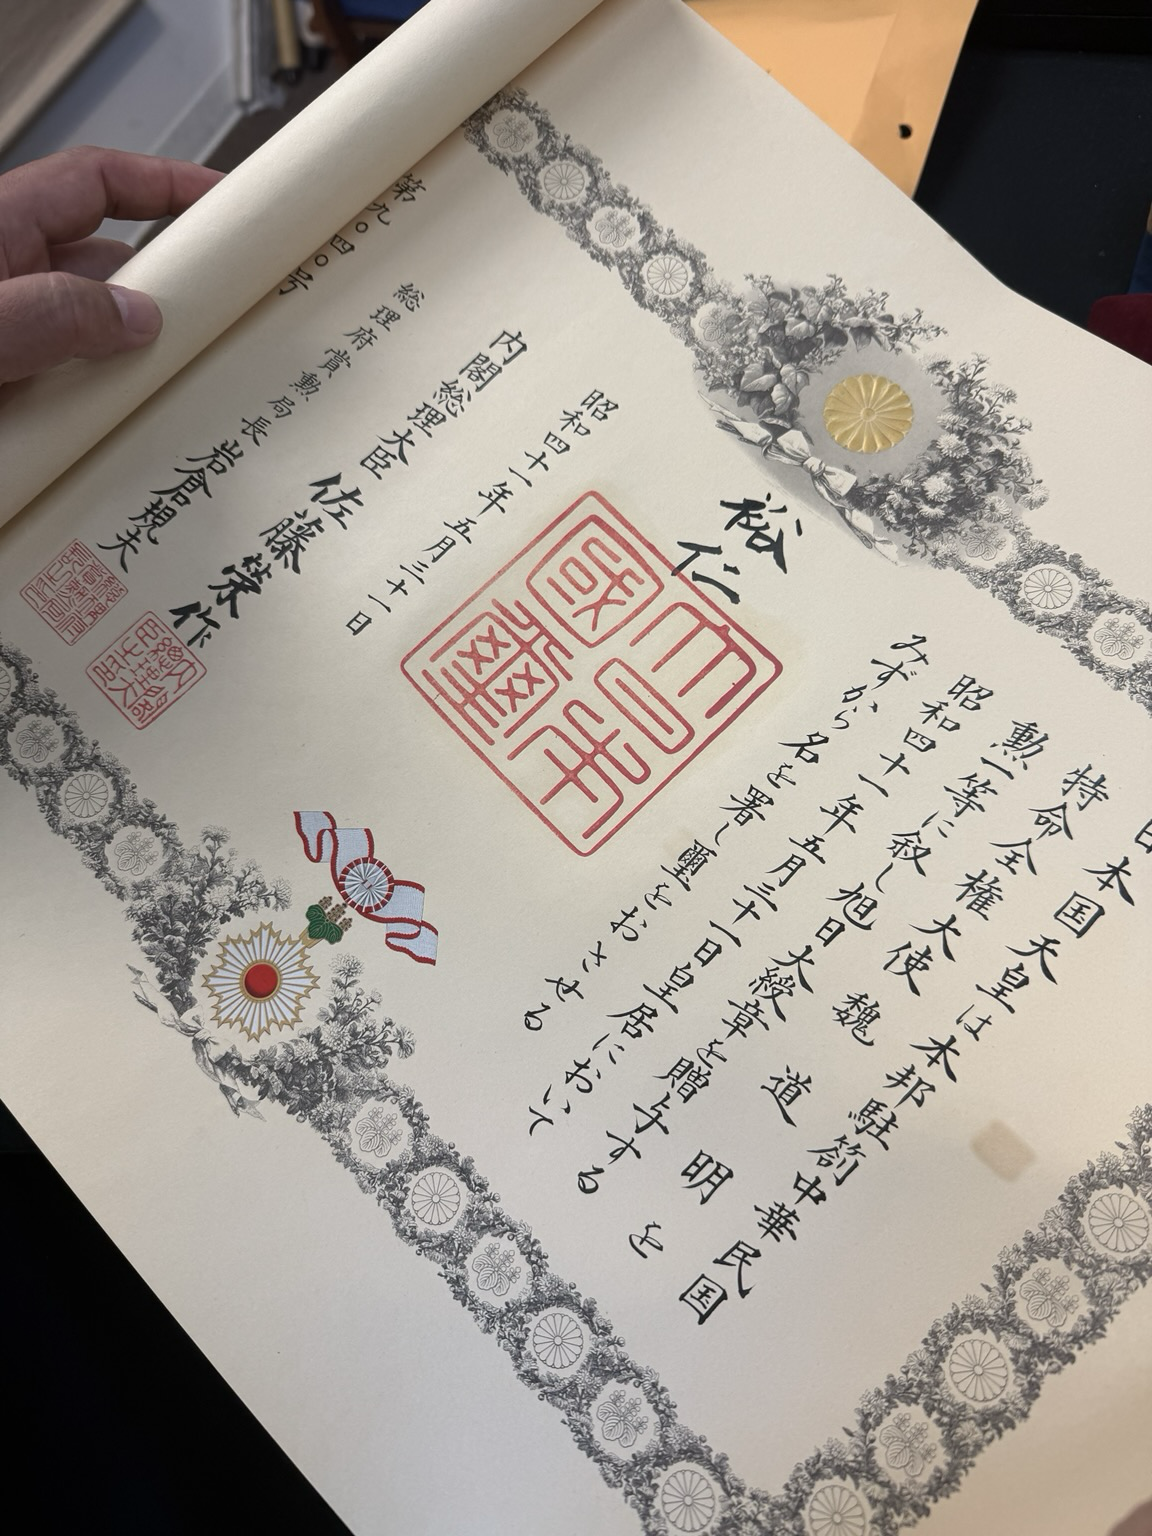 日本国天皇は本邦駐箚中華民国
特命全権大使 魏 道 明 を
勲一等に叙し旭日大綬章を贈与する
昭和四十一年五月三十一日皇居において
みずから名を署し璽をおさせる
裕仁
大日本國璽
昭和四十一年五月三十一日
内閣総理大臣 佐藤榮作
内閣總理大臣之印
総理府賞勲局長 岩倉規夫
第九〇四〇号